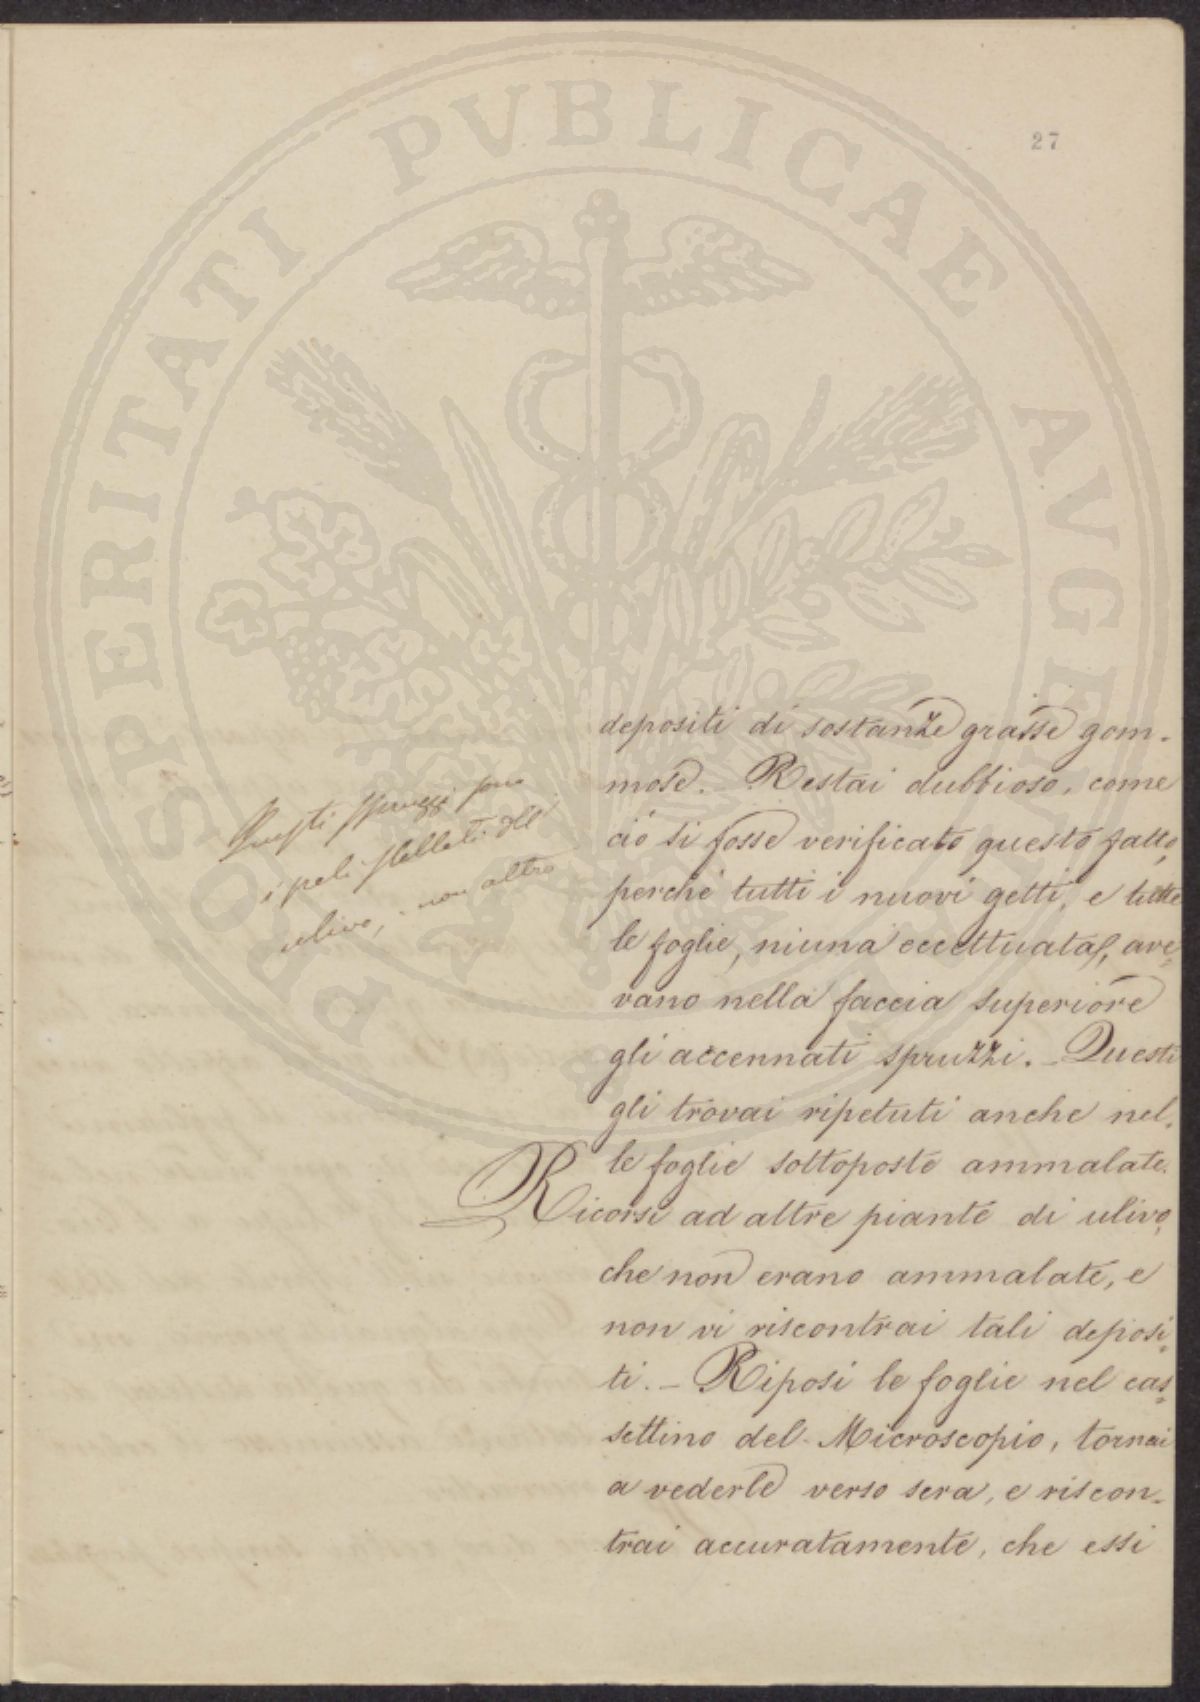 27
PROSPERITATI PVBLICAE AVGENDAE
Questi spruzzi sono
i peli stellati dell'
ulivo, e non altro
depositi di sostanze grasse gom-
mose. Restai dubbioso, come
ciò si fosse verificato questo fatto,
perché tutti i nuovi getti, e tutte
le foglie, niuna eccettuata, ave-
vano nella faccia superiore
gli accennati spruzzi. _ Questi
gli trovai ripetuti anche nel-
le foglie sottoposte ammalate.
Ricorsi ad altre piante di ulivo,
che non erano ammalate, e
non vi riscontrai tali deposi-
ti. _ Riposi le foglie nel cas-
settino del Microscopio, tornai
a vederle verso sera, e riscon-
trai accuratamente, che essi